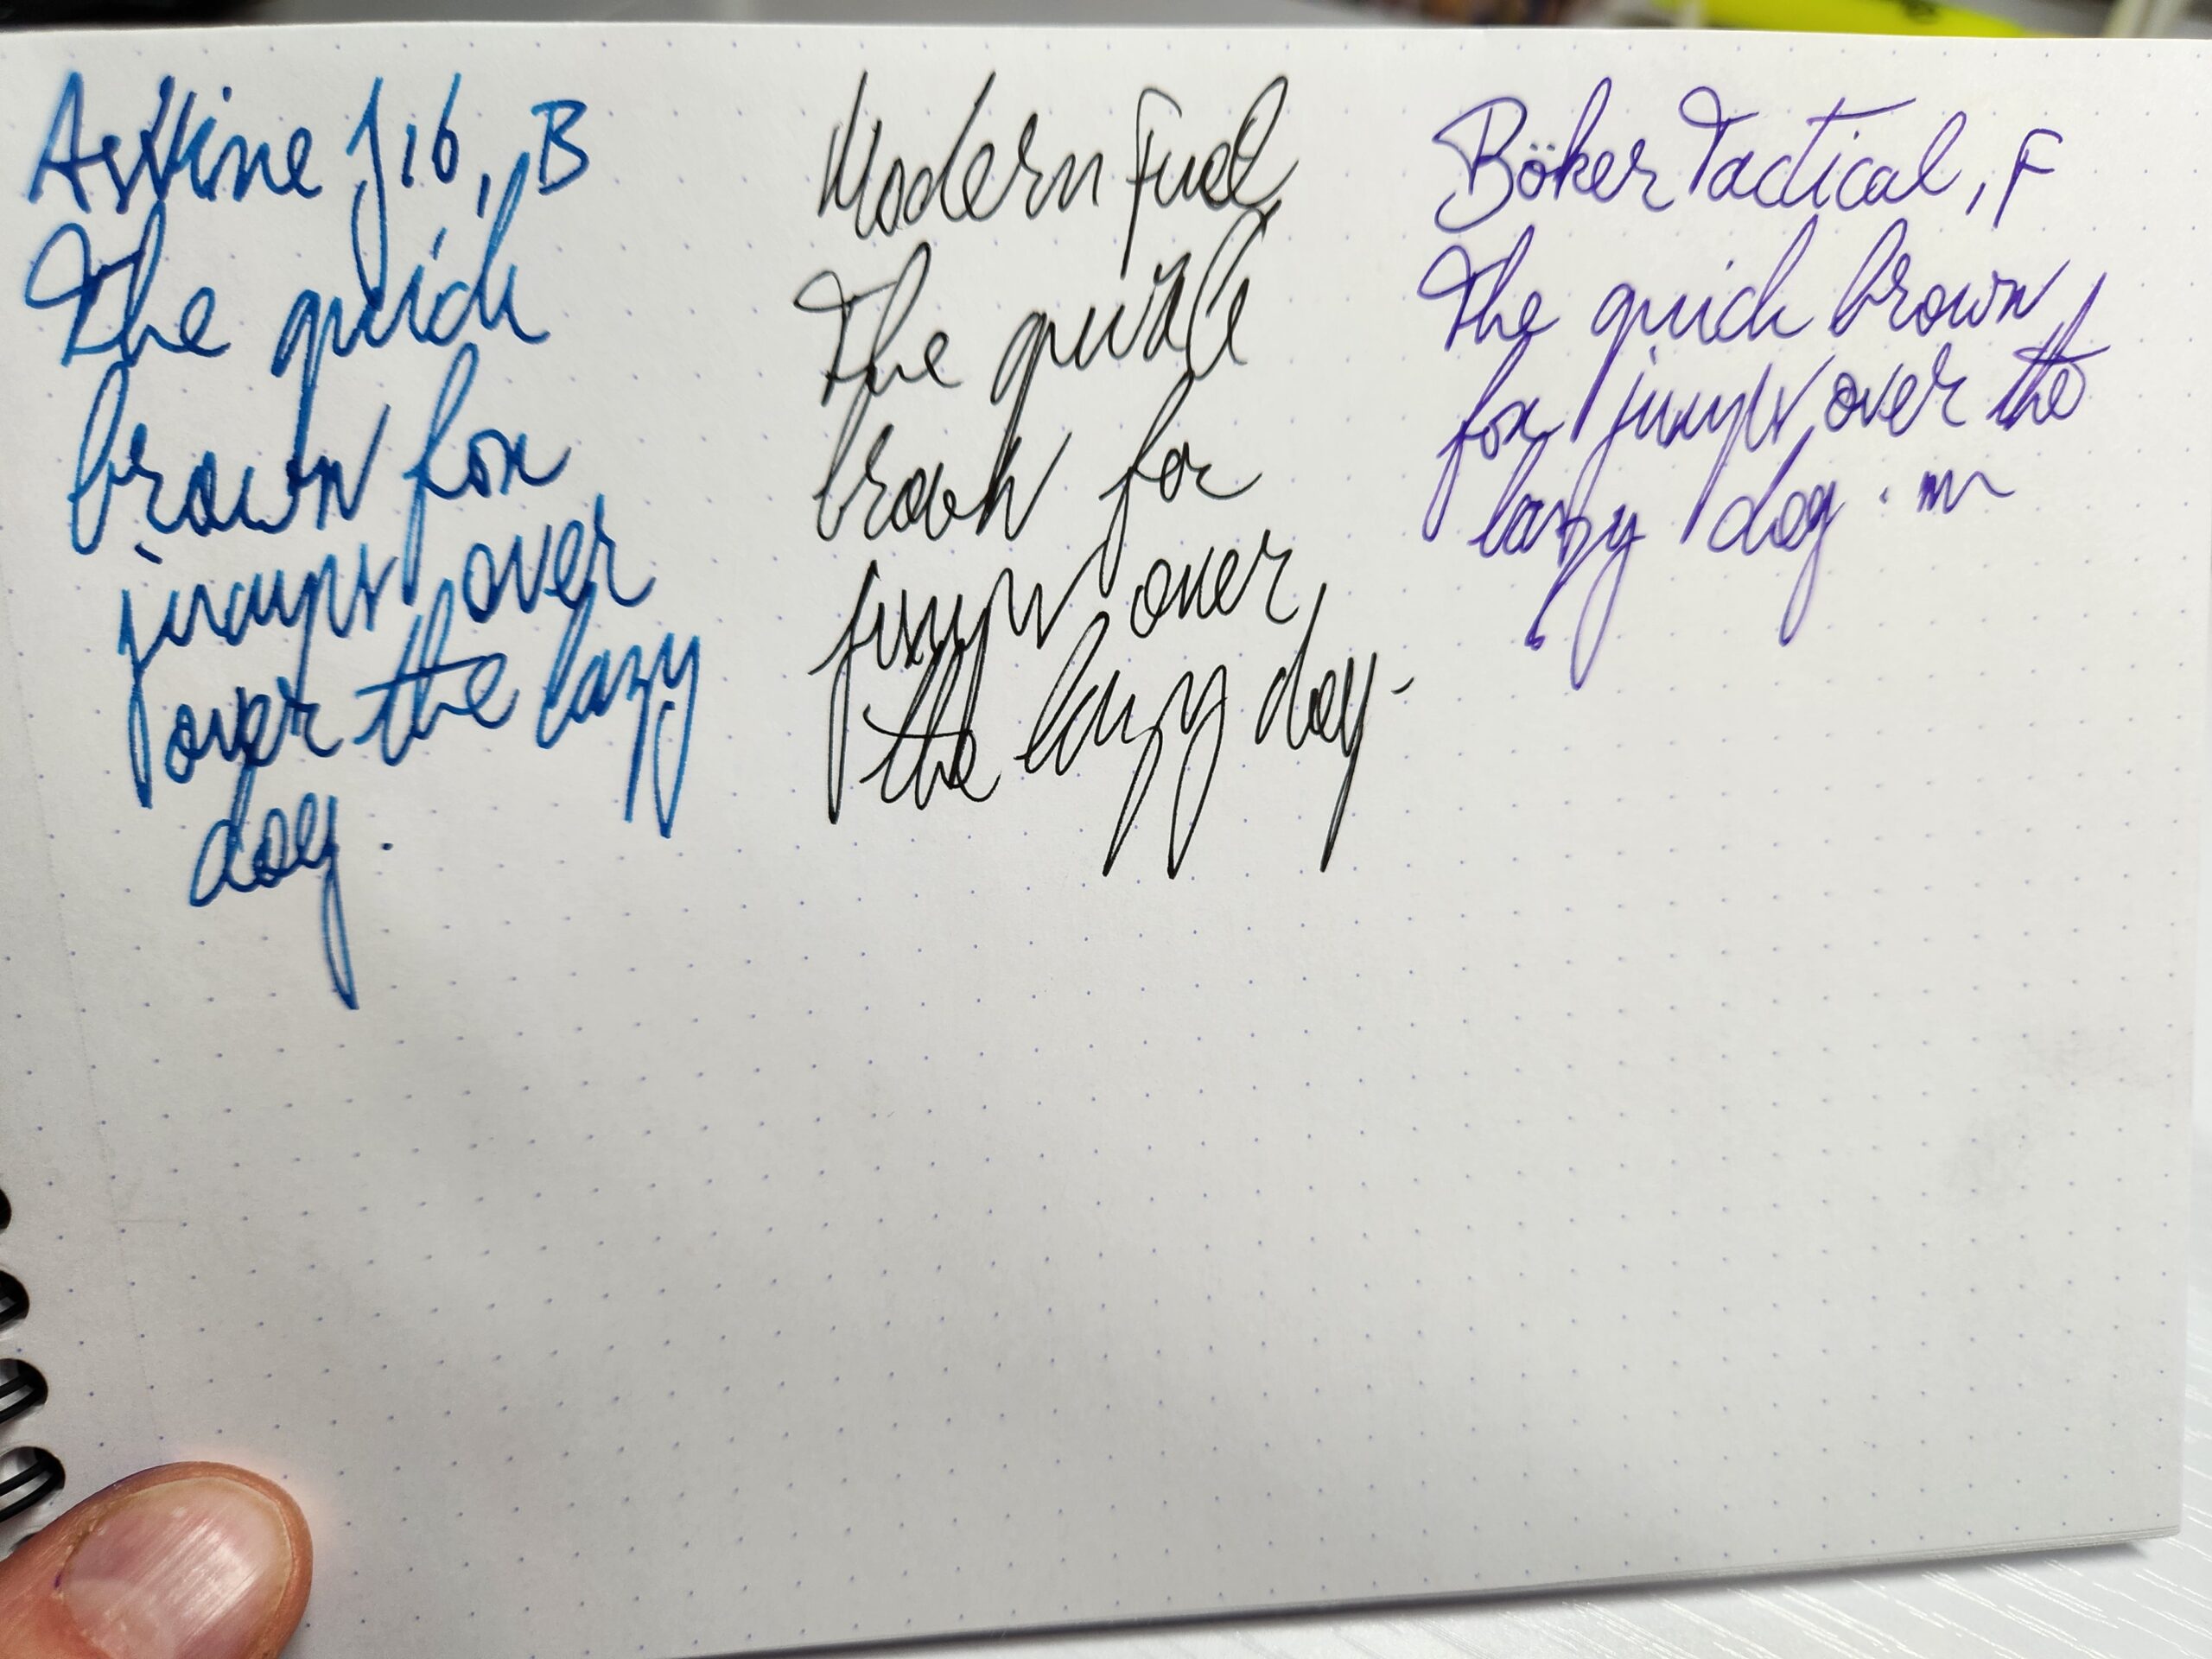 Astvine J16, B
The quick
brown fox
jumps over
over the lazy
dog.
Modern Fuel
The quick
brown fox
jumps over
the lazy dog.
Böker Tactical, F
The quick brown
fox jumps over the
lazy dog.